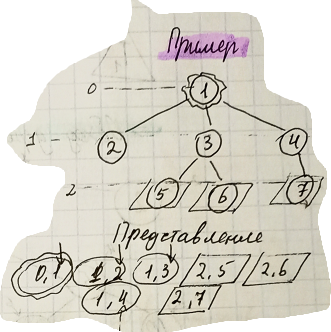 Пример
0 1
1 2 3 4
2 5 6 7
Представление
0,1 1,2 1,3 2,5 2,6
1,4 2,7